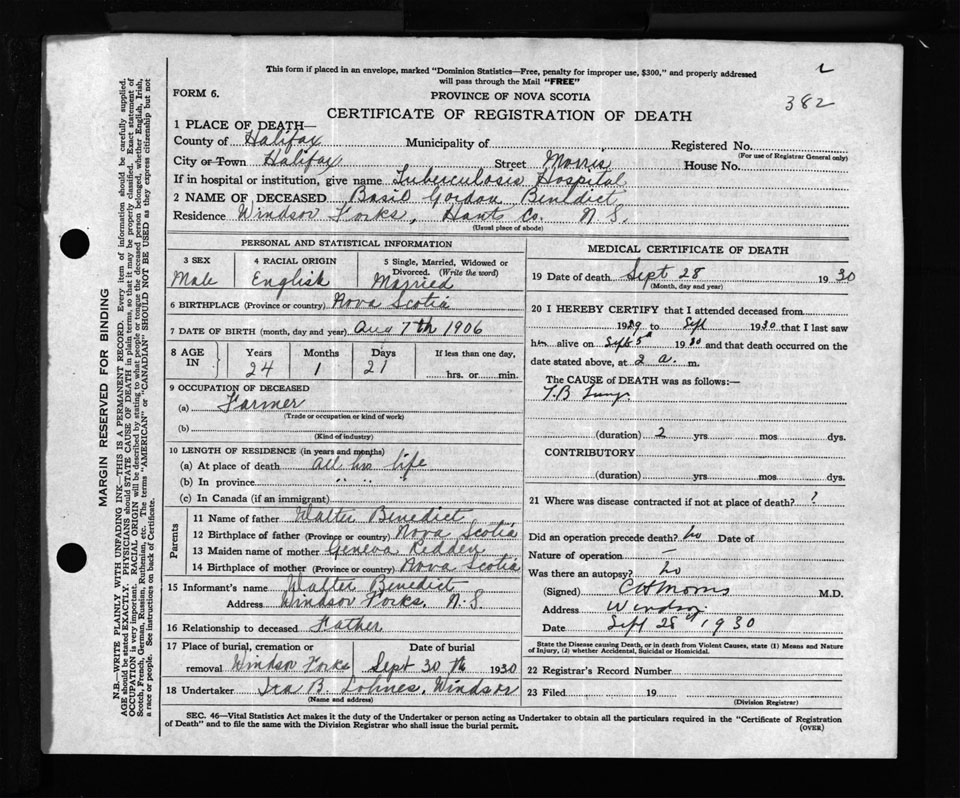 This form if placed in an envelope, marked "Dominion Statistics—Free, penalty for improper use, $300," and properly addressed
will pass through the Mail "FREE"
382
FORM 6.
PROVINCE OF NOVA SCOTIA
CERTIFICATE OF REGISTRATION OF DEATH
1 PLACE OF DEATH—
County of Halifax Municipality of Registered No.
(For use of Registrar General only)
City or Town Halifax Street Morris House No.
If in hospital or institution, give name Tuberculosis Hospital
2 NAME OF DECEASED Basil Gordon Benedict
Residence Windsor Forks, Hants Co. N S.
(Usual place of abode)
PERSONAL AND STATISTICAL INFORMATION
3 SEX 4 RACIAL ORIGIN 5 Single, Married, Widowed or
Divorced. (Write the word)
Male English Married
6 BIRTHPLACE (Province or country) Nova Scotia
7 DATE OF BIRTH (month, day and year) Aug 7th 1906
8 AGE IN Years Months Days If less than one day,
24 1 21 hrs. or min.
9 OCCUPATION OF DECEASED
(a) Farmer
(Trade or occupation or kind of work)
(b)
(Kind of industry)
10 LENGTH OF RESIDENCE (in years and months)
(a) At place of death All his life
(b) In province " " "
(c) In Canada (if an immigrant)
Parents
11 Name of father Walter Benedict
12 Birthplace of father (Province or country) Nova Scotia
13 Maiden name of mother Geneva Redden
14 Birthplace of mother (Province or country) Nova Scotia
15 Informant's name Walter Benedict
Address Windsor Forks, N. S.
16 Relationship to deceased Father
17 Place of burial, cremation or Date of burial
removal Windsor Forks Sept 30th 1930
18 Undertaker Ira B. Lohnes, Windsor
(Name and address)
MEDICAL CERTIFICATE OF DEATH
19 Date of death Sept 28 1930
(Month, day and year)
20 I HEREBY CERTIFY that I attended deceased from
1929 to Sept 1930 that I last saw
him alive on Sept 5th 1930 and that death occurred on the
date stated above, at 2 a. m.
The CAUSE of DEATH was as follows:—
T.B Lungs
(duration) 2 yrs mos dys.
CONTRIBUTORY
(duration) yrs mos dys.
21 Where was disease contracted if not at place of death? ?
Did an operation precede death? no Date of
Nature of operation —
Was there an autopsy? no
(Signed) C H Morris M.D.
Address Windsor
Date Sept 28th 1930
State the Disease causing Death, or in death from Violent Causes, state (1) Means and Nature
of Injury, (2) whether Accidental, Suicidal or Homicidal.
22 Registrar's Record Number
23 Filed 19
(Division Registrar)
SEC. 46—Vital Statistics Act makes it the duty of the Undertaker or person acting as Undertaker to obtain all the particulars required in the "Certificate of Registration
of Death" and to file the same with the Division Registrar who shall issue the burial permit.
(OVER)
MARGIN RESERVED FOR BINDING
N.B.—WRITE PLAINLY WITH UNFADING INK—THIS IS A PERMANENT RECORD. Every item of information should be carefully supplied.
AGE should be stated EXACTLY. PHYSICIANS should STATE CAUSE OF DEATH in plain terms, so that it may be properly classified. Exact statement of
OCCUPATION is very important. RACIAL ORIGIN will be described by stating to what people or tongue the deceased person belonged, whether English, Irish,
Scotch, French, German, Russian, Ruthenian, etc. The terms "AMERICAN" or "CANADIAN" SHOULD NOT BE USED as they express citizenship but not
a race or people. See instructions on back of Certificate.